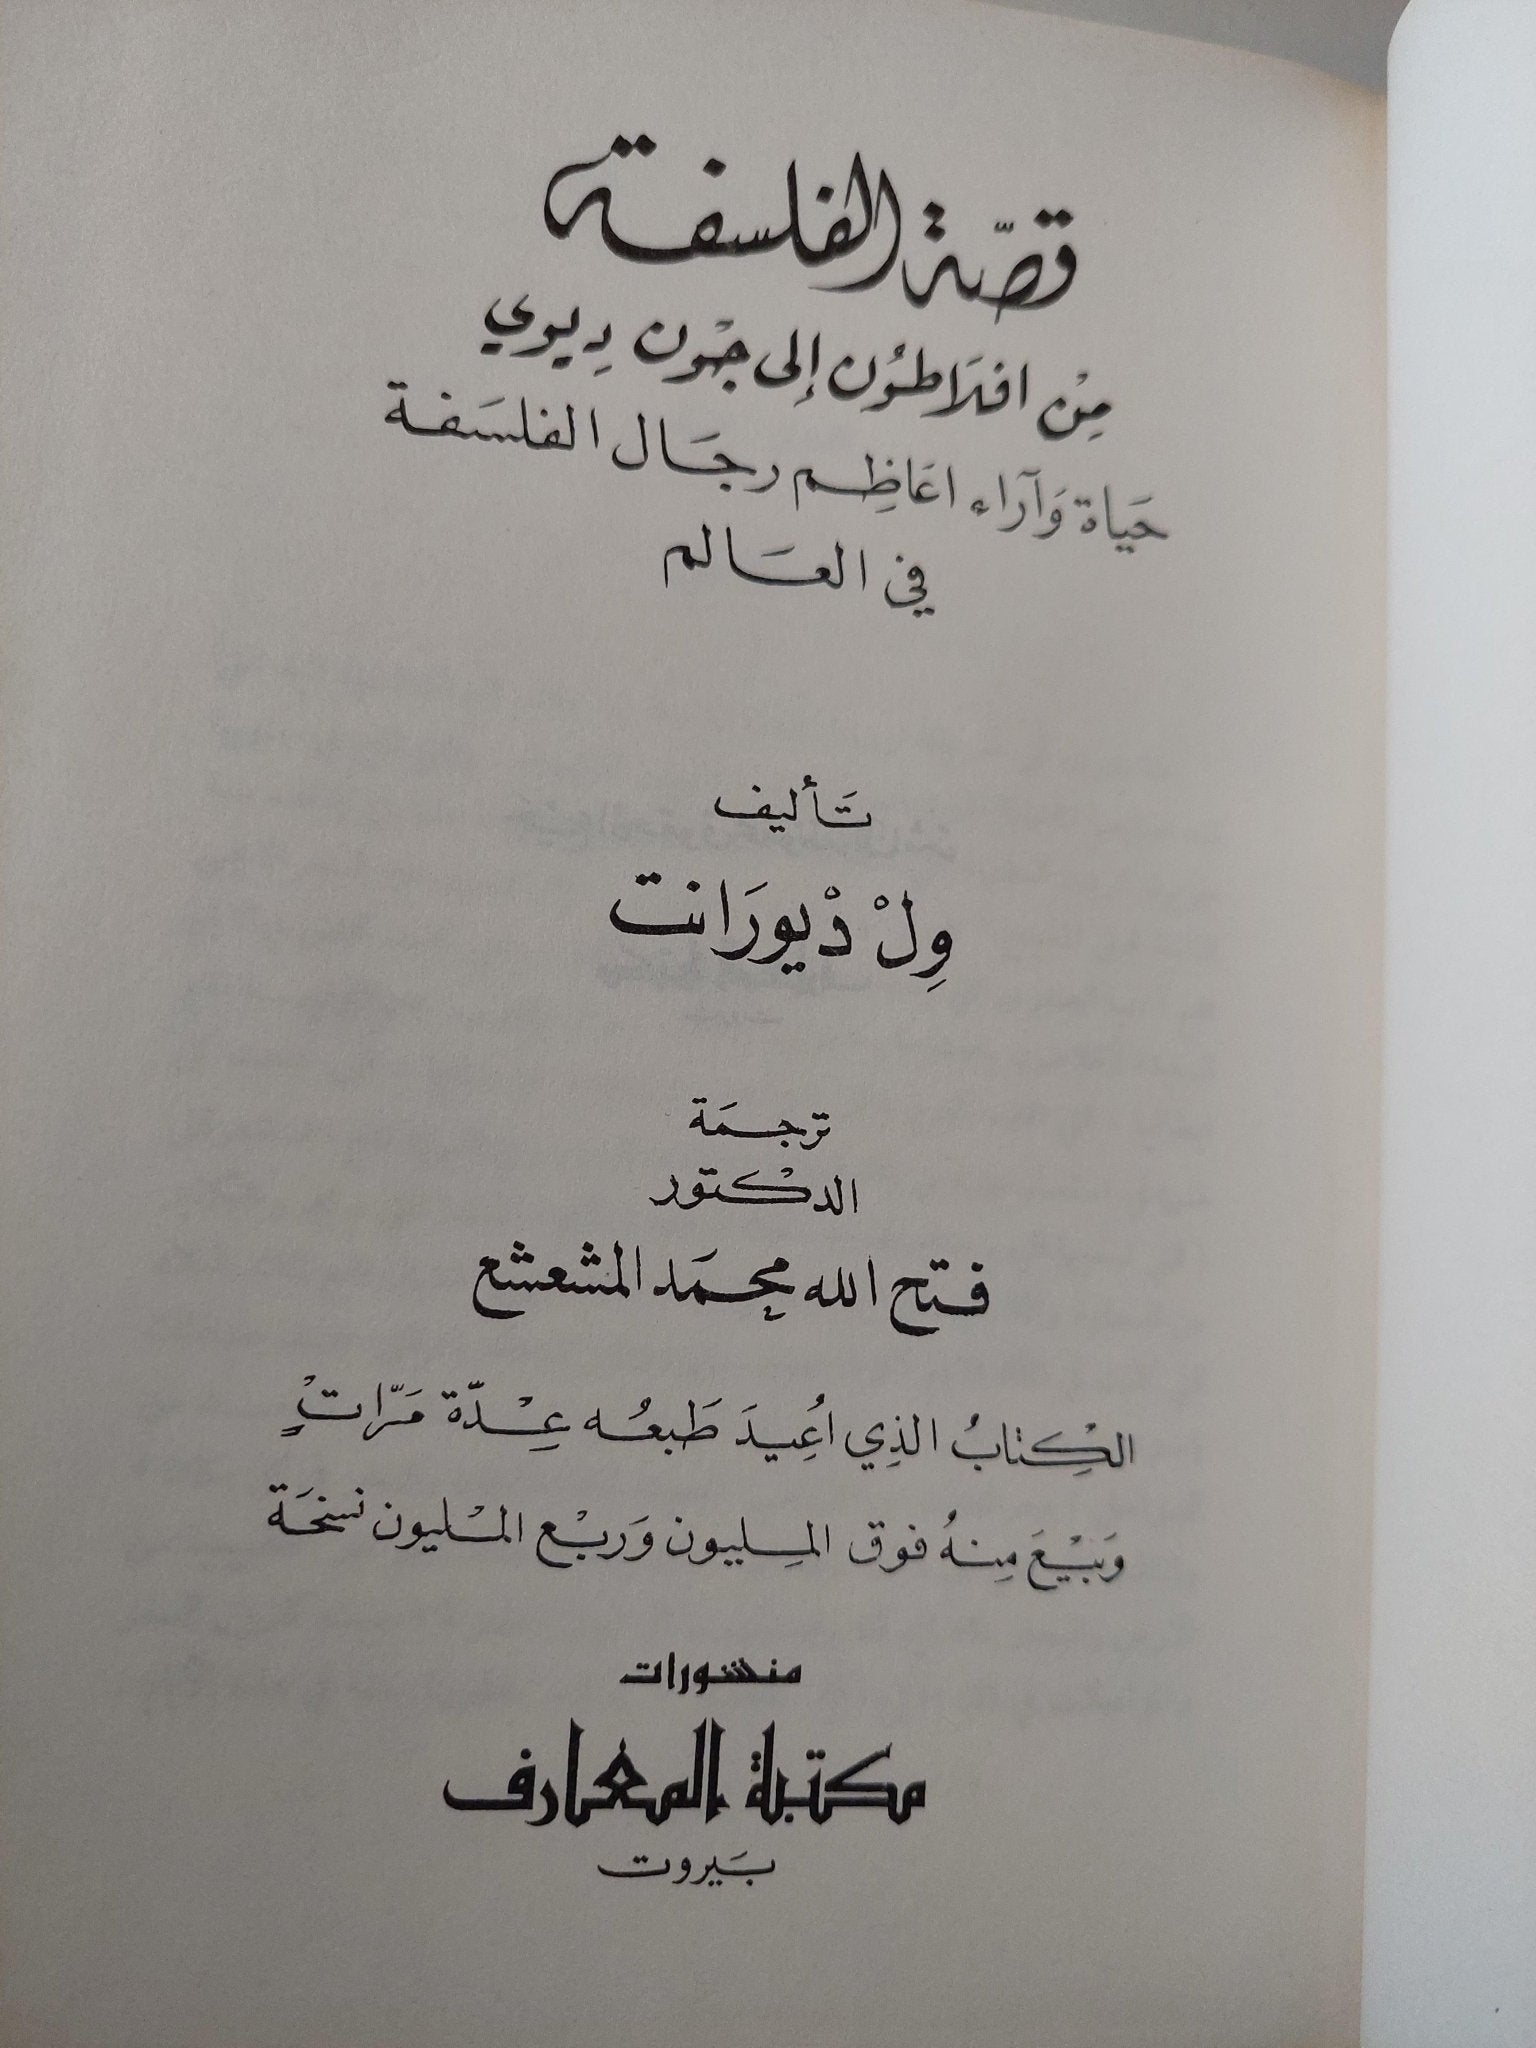 قصّة الفلسفة
مِنْ افلَاطُون إلى جْون دِيوي
حَياة وَآراء اعَاظِم رجَال الفلسَفة
في العَالم
تَأليف
وِلْ دْيورَانت
ترجمَة
الدكْتور
فتح الله محمَد المشعشع
الكِتابُ الذِي اُعِيدَ طَبعُه عِدّة مَرّاتٍ
وَبيْعَ مِنهُ فوق المِليون وَربْع المْليون نسخَة
منشورات
مكتبة المعارف
بَيروت